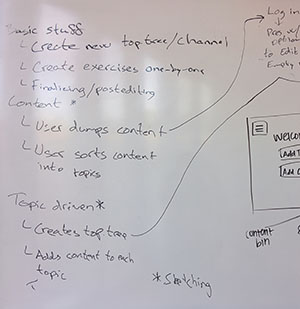 Basic stuff
└ Create new top tree/channel
└ Create exercises one-by-one
└ Finalizing/postediting
Content *
└ User dumps content
└ User sorts content
into topics
Topic driven*
└ Creates top tree
└ Adds content to each
topic
*Sketching
Log in
Pres. w/
option
to Edit
Empty
Welcom
Add T
Add C
content
bin